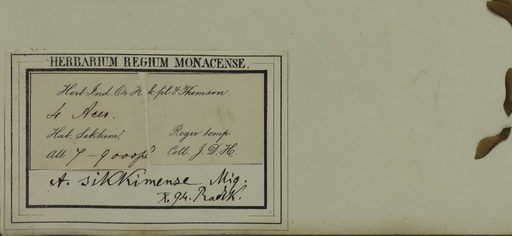 HERBARIUM REGIUM MONACENSE.
Herb. Ind. Or. H. f. & Thomson.
4 Acer.
Hab. Sikkim Regio temp
Alt. 7-9000 ped Coll. J. D. H.
A. sikkimense Miq.
X. 94. Radlk.